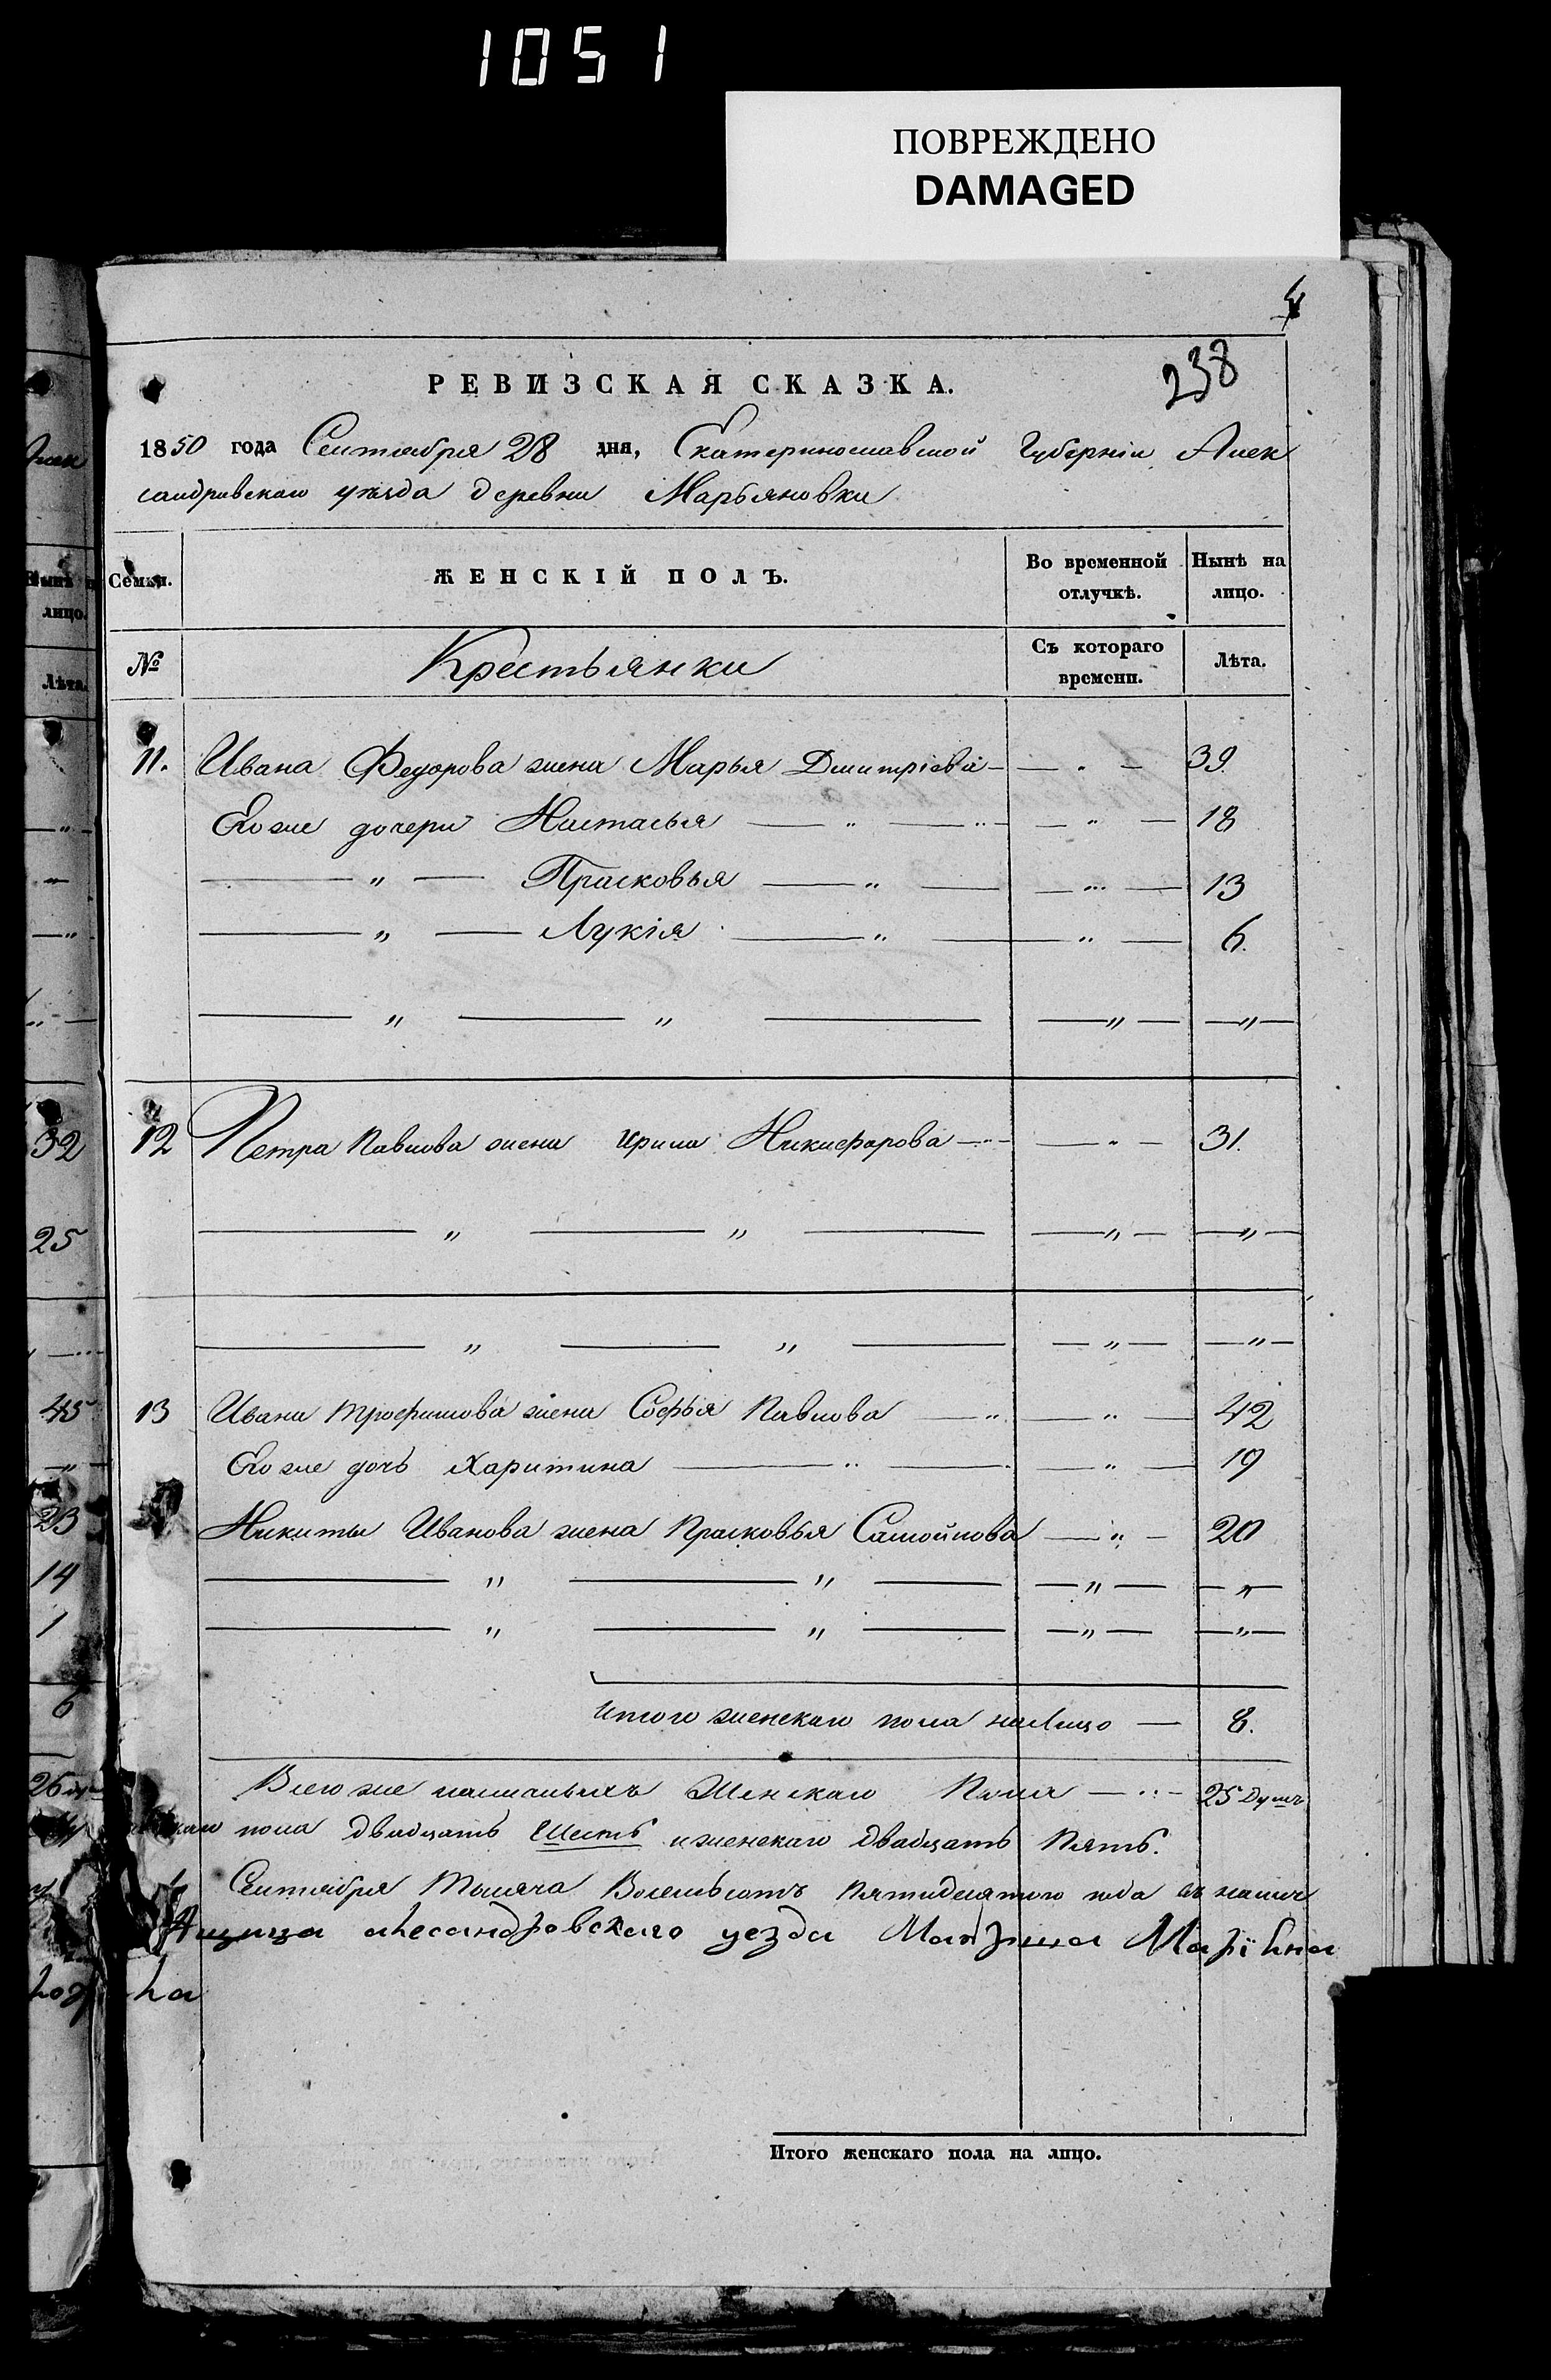 1051
ПОВРЕЖДЕНО
DAMAGED
4
238
РЕВИЗСКАЯ СКАЗКА.
1850 года Сентября 28 дня, Екатеринославской Губерніи Алек
сандровскаго уѣзда деревни Марьяновки
Семьи. ЖЕНСКІЙ ПОЛЪ. Во временной отлучкѣ. Нынѣ на лицо.
№ Крестьянки Съ котораго времени. Лѣта.
11. Ивана Федорова жена Марья Дмитріева — " — 39.
Его же дочери Настасья — " — " — " — 18
— " — Прасковья — " — " — 13
— " — Лукія — " — " — 6.
— " — " — — " — — " —
12 Петра Павлова жена Ирина Никифарова — " — " — 31.
— " — " — — " — — " —
— " — " — — " — — " —
13 Ивана Трофимова жена Софья Павлова — " — " — 42
Его же дочь Харитина — " — " — 19
Никиты Иванова жена Прасковья Самойлова — " — 20
— " — " — — " — — " —
— " — " — — " — — " —
Итого женскаго пола налицо — 8.
Всего же наличныхъ Женскаго Пола — " — 25 Душъ
пола двадцать Шесть и женскаго двадцать Пять.
Сентября Тысяча Восемьсотъ Пятидесятого года
алесандровскаго уезда
ha
Итого женскаго пола на лицо.
Нынѣ
лицо.
Лѣта.
32
25
45
23
14
1
6
26